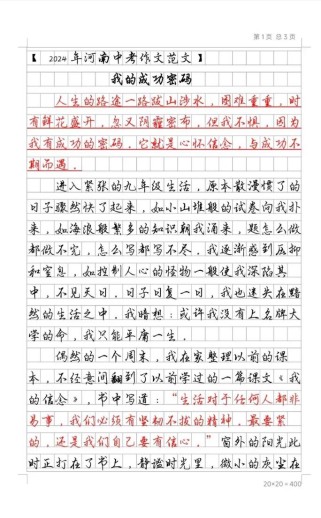 第1页 总3页
【 2024 年河南中考作文范文】
我的成功密码
人生的路途一路跋山涉水，困难重重，时
有鲜花盛开，忽又阴霾密布，但我不惧，因为
我有成功的密码，它就是心怀信念，与成功不
期而遇。
进入紧张的九年级生活，原本散漫惯了的
日子骤然快了起来，如小山堆般的试卷向我扑
来，如海浪般繁多的知识朝我涌来，题怎么做
都做不完，怎么写都写不尽，我逐渐感到压抑
和窒息，如控制人心的怪物一般使我深陷其
中，不见天日，日子日复一日，我也迷失在黯
然的生活之中，我暗想：或许我没有上名牌大
学的命，我只能平庸一生。
偶然的一个周末，我在家整理以前的课
本，不经意间翻到了以前学过的一篇课文《我
的信念》，书中写道：“生活对于任何人都非
易事，我们必须有坚韧不拔的精神，最要紧
的，还是我们自己要有信心。”窗外的阳光此
时正打在了书上，静谧时光里，微小的灰尘在
20×20=400